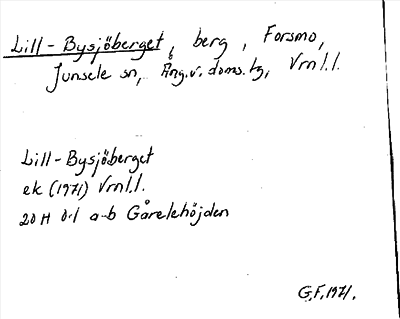 Lill-Bysjöberget, berg, Forsmo,
Junsele sn, Ång.v. doms.tg, Vrnl.l.
Lill-Bysjöberget
ek (1971) Vrnl.l.
20H 0-1 a-b Gårelehöjden
G.F. 1971.